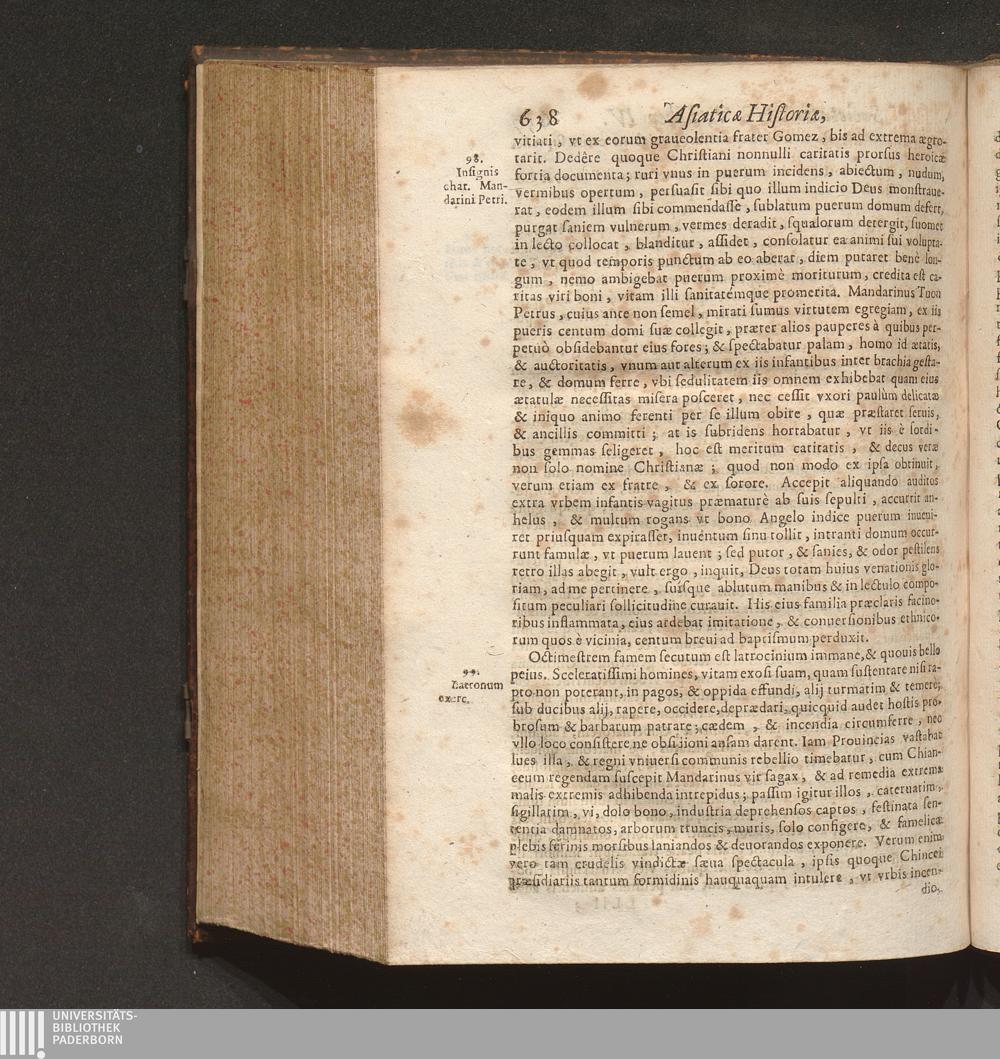 638 Asiaticæ Historiæ,
vitiati, vt ex eorum graueolentia frater Gomez, bis ad extrema ægro-
tarit. Dedêre quoque Christiani nonnulli caritatis prorsus heroicæ
98.
Insignis
char. Man-
darini Petri.
fortia documenta; ruri vnus in puerum incidens, abiectum, nudum,
vermibus opertum, persuasit sibi quo illum indicio Deus monstraue-
rat, eodem illum sibi commendasse, sublatum puerum domum defert,
purgat saniem vulnerum, vermes deradit, squalorum detergit, suomet
in lecto collocat, blanditur, assidet, consolatur ea animi sui volupta-
te, vt quod temporis punctum ab eo aberat, diem putaret benè lon-
gum, nemo ambigebat puerum proximè moriturum, credita est ca-
ritas viri boni, vitam illi sanitatémque promerita. Mandarinus Tuon
Petrus, cuius ante non semel, mirati sumus virtutem egregiam, ex iis
pueris centum domi suæ collegit, præter alios pauperes à quibus per-
petuò obsidebantur eius fores; & spectabatur palam, homo id ætatis,
& auctoritatis, vnum aut alterum ex iis infantibus inter brachia gesta-
re, & domum ferre, vbi sedulitatem iis omnem exhibebat quam eius
ætatulæ necessitas misera posceret, nec cessit vxori paulùm delicatæ
& iniquo animo ferenti per se illum obire, quæ præstaret seruis,
& ancillis committi; at is subridens hortabatur, vt iis è sordi-
bus gemmas seligeret, hoc est meritum caritatis, & decus veræ
non solo nomine Christianæ; quod non modo ex ipsa obtinuit,
verum etiam ex fratre, & ex sorore. Accepit aliquando auditos
extra vrbem infantis vagitus præmaturè ab suis sepulti, accurrit an-
helus, & multum rogans vt bono Angelo indice puerum inueni-
ret priusquam expirasset, inuentum sinu tollit, intranti domum occur-
runt famulæ, vt puerum lauent; sed putor, & sanies, & odor pestilens
retro illas abegit, vult ergo, inquit, Deus totam huius venationis glo-
riam, ad me pertinere, suisque ablutum manibus & in lectulo compo-
situm peculiari sollicitudine curauit. His eius familia præclaris facino-
ribus inflammata, eius ardebat imitatione, & conuersionibus ethnico-
rum quos è vicinia, centum breui ad baptismum perduxit.
Octimestrem famem secutum est latrocinium immane, & quouis bello
99.
Latronum
exerc.
peius. Sceleratissimi homines, vitam exosi suam, quam sustentare nisi ra-
pto non poterant, in pagos, & oppida effundi, alij turmatim & temerè,
sub ducibus alij, rapere, occidere, deprædari, quicquid audet hostis pro-
brosum & barbarum patrare; cædem, & incendia circumferre, nec
vllo loco consistere ne obsidioni ansam darent. Iam Prouincias vastabat
lues illa, & regni vniuersi communis rebellio timebatur, cum Chian-
ceum regendam suscepit Mandarinus vir sagax, & ad remedia extrema
malis extremis adhibenda intrepidus; passim igitur illos, cateruatim,
sigillatim, vi, dolo bono, industria deprehensos captos, festinata sen-
tentia damnatos, arborum truncis, muris, solo configere, & famelicæ
plebis ferinis morsibus laniandos & deuorandos exponere. Verum enim
vero tam crudelis vindictæ sæua spectacula, ipsis quoque Chincei
præsidiariis tantum formidinis hauquaquam intulere, vt vrbis incen-
dio,
UNIVERSITÄTS-
BIBLIOTHEK
PADERBORN